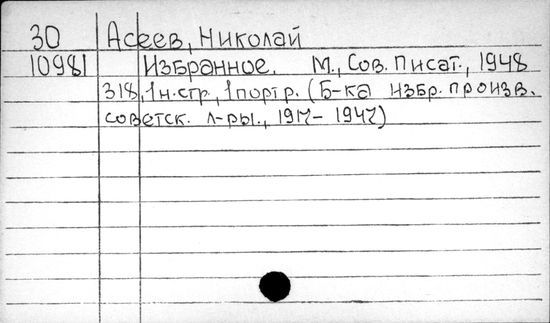 30 Асеев, Николай
10981 Избранное. М., Сов. Писат., 1948
318, 1 н.стр., 1 портр. (Б-ка избр. произв.
советск. л-ры., 1917-1947)